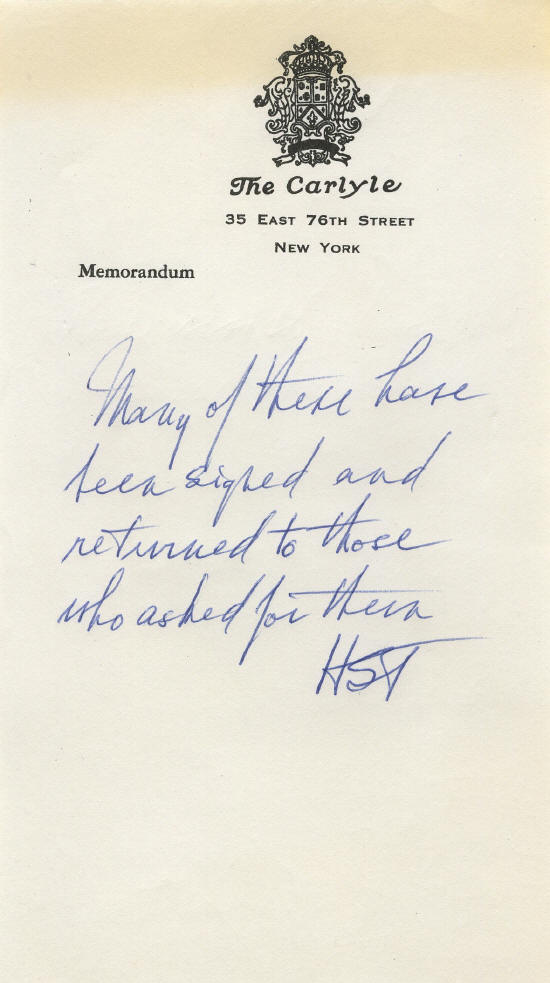 The Carlyle
35 East 76th Street
New York
Memorandum
Many of these have
been signed and
returned to those
who asked for them
HST